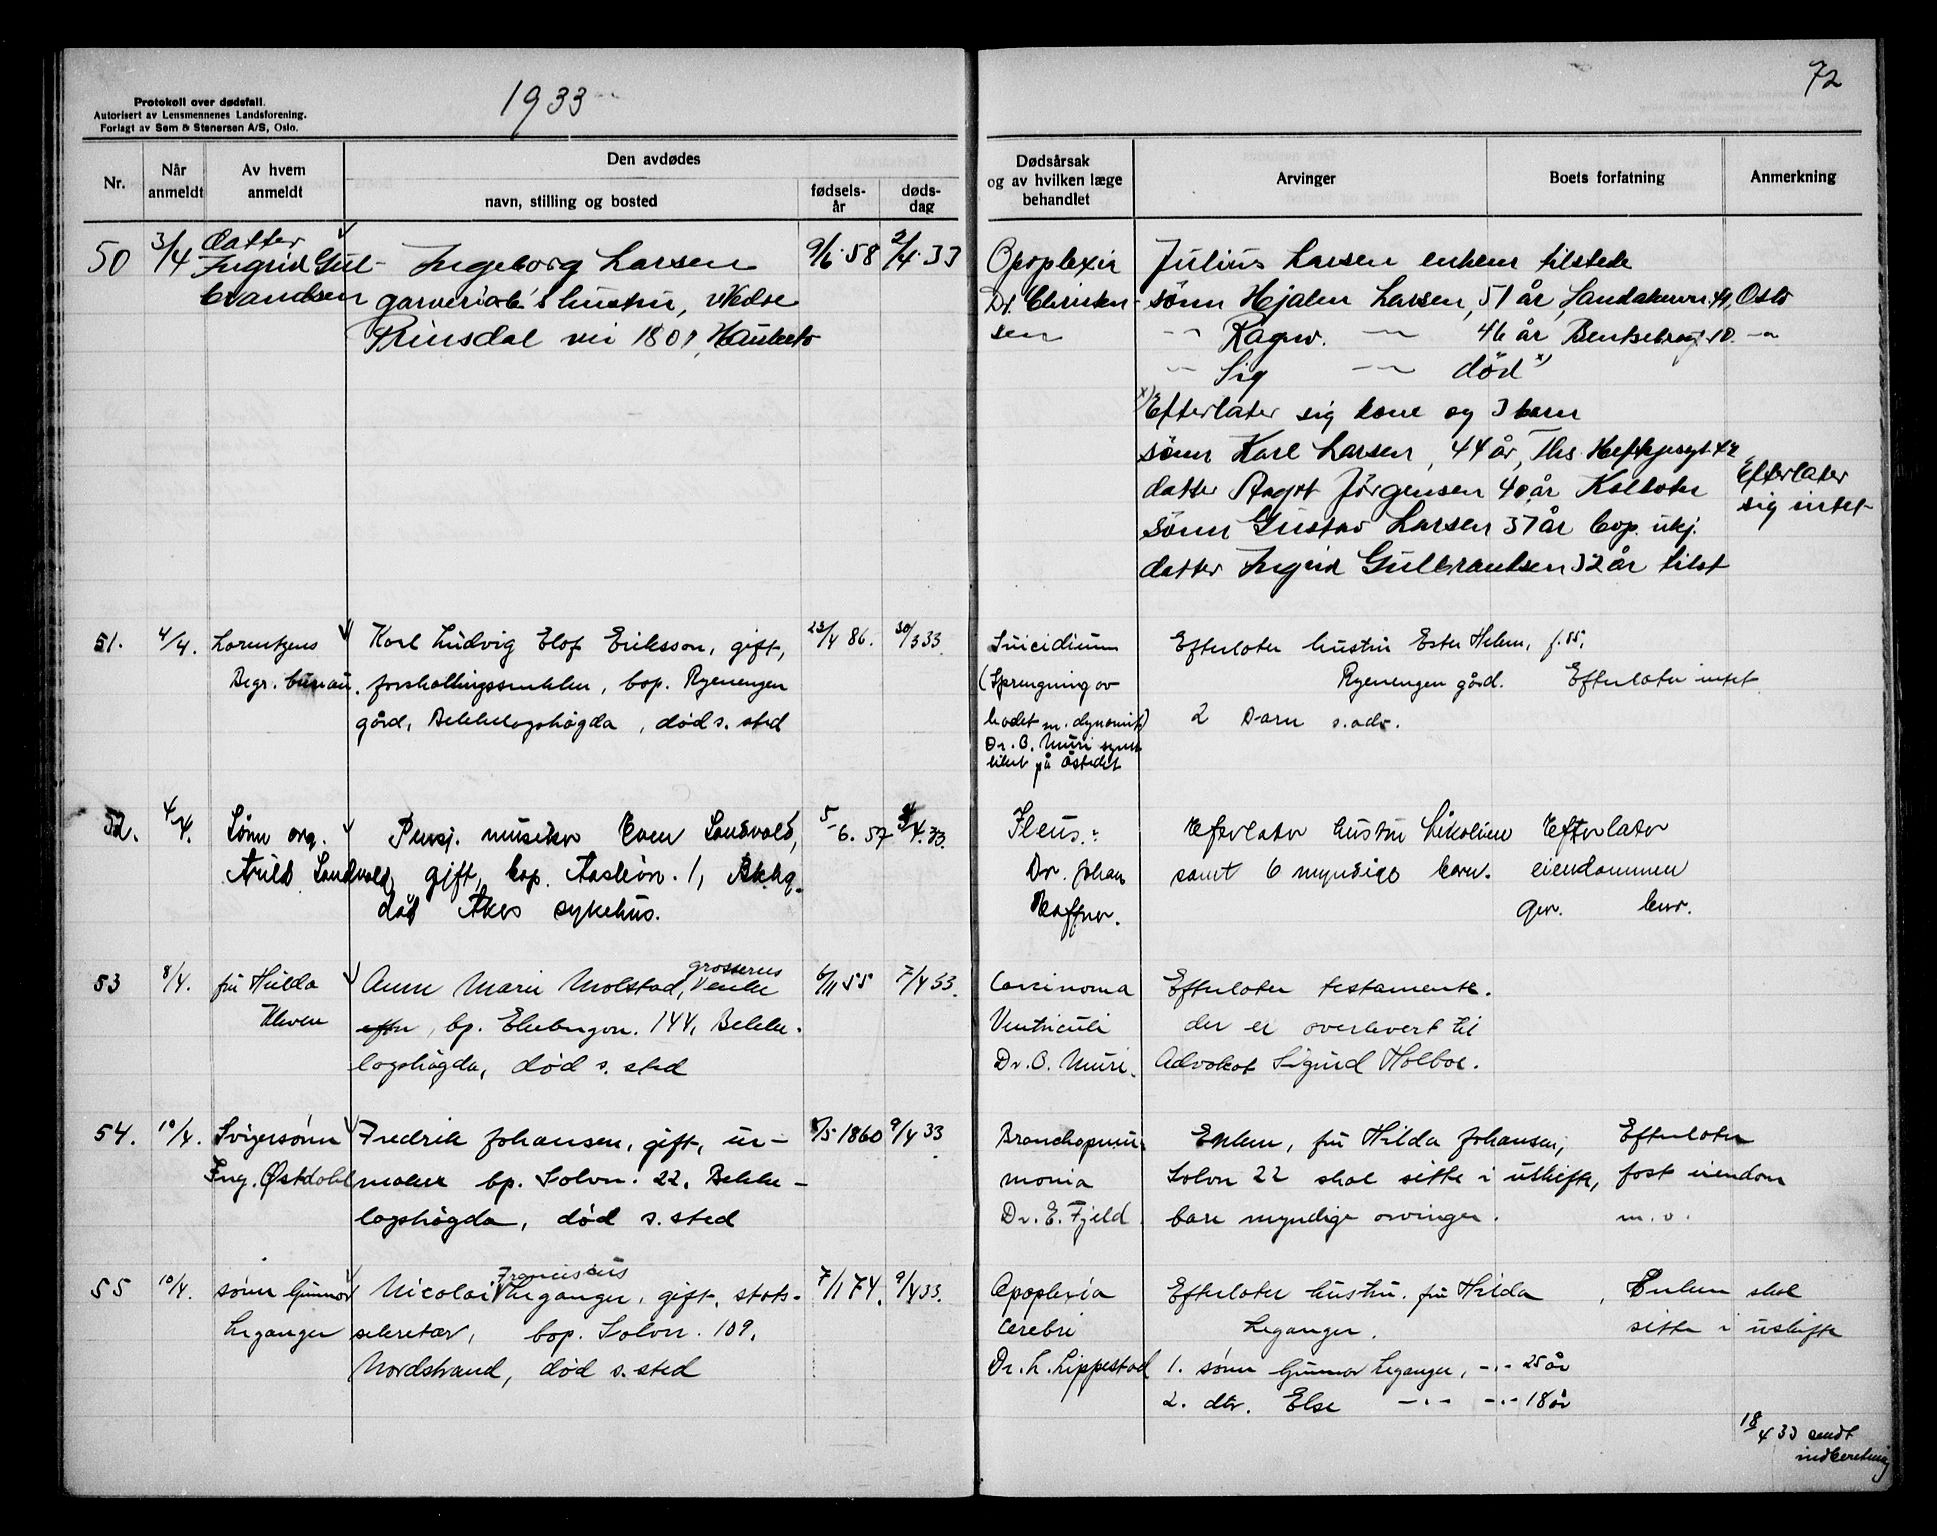 1933
72
Protokoll over dødsfall.
Autorisert av Lensmennenes Landsforening.
Forlagt av Sem & Stenersen A/S, Oslo.
Nr.
Når anmeldt
Av hvem anmeldt
Den avdødes
navn, stilling og bosted
fødsels-år
døds-dag
Dødsårsak og av hvilken læge behandlet
Arvinger
Boets forfatning
Anmerkning
50 3/4 Datter Ingeborg Larsen 9/6 58 2/4 33 Apoplexia Julius Larsen enkem tilstede
Ingrid Gul-
brandsen garveriarb's hustru, Nedre Dr. Christen- sønn Hjalm Larsen, 51 år, Sandakerven 41, Oslo
Prinsdal vei 1801, Hauketo sen -"- Ragnv. -"- 46 år Bentsebrog 10. -"-
-"- Sig -"- død x)
x) Efterlater sig kone og 3 barn
sønn Karl Larsen, 44 år, Ths. Heftyesgt 42
datter Aagot Jörgensen 40 år Kolbotn Efterlater
sønn Gustav Larsen 37 år bop. ukj. sig intet
datter Ingrid Gulbrandsen 32 år tilst
51. 4/4. Lorentzens Karl Ludvig Elof Eriksson, gift, 23/4 86. 30/3 33 Suicidium Efterlater hustru Ester Helen, f. 85,
Begr. bureau. forskallingssnekker, bop. Ryenengen (Sprengning av Ryenengen gård. Efterlater intet
gård, Bekkelagshögda, død s. sted hodet m. dynamit) 2 barn s. adr.
Dr. O. Muri
på åstedet
52. 4/4. Sønn org. Pensj. musiker Even Sandvold, 5/6. 57 3/4. 33. Ileus. Efterlater hustru Nikoline Efterlater
Arild Sandvold, gift, bop. Aaslivn. 1, Bkhg. Dr. Johan samt 6 myndige barn. eiendommen
død Akers sykehus. Haffner.
53 8/4. fru Hulda Anne Marie Molstad, grosserers enke 6/11 55 7/4 33. Carcinoma Efterlater testamente.
Kleven bp. Ekebergvn. 144, Bekke- Ventriculi der er overlevert til
lagshögda, død s. sted Dr. O. Muri. Advokat Sigurd Holboe.
54. 10/4. Svigersønn Fredrik Johansen, gift, ur- 8/5 1860 9/4 33 Bronchopneu- Enken, fru Hilda Johansen, Efterlater
Ing. Østdahl maker bp. Solvn. 22, Bekke- monia Solvn 22 skal sitte i uskifte, fast eiendom
lagshögda, død s. sted Dr. E. Fjeld bare myndige arvinger. m. v.
55 10/4. sønn Gunnar Nicolai Franciscus Leganger, gift, stats- 7/1 74. 9/4 33. Apoplexia Efterlater hustru. fru Hilda Enken skal
Leganger sekretær, bop. Solvn. 109, Cerebri Leganger. sitte i uskifte
Nordstrand, død s. sted Dr. L. Lippestad 1. sønn Gunnar Leganger, -"- 25 år
2. dtr. Else -"- -"- 18 år
18/4 33 sendt
indberetning